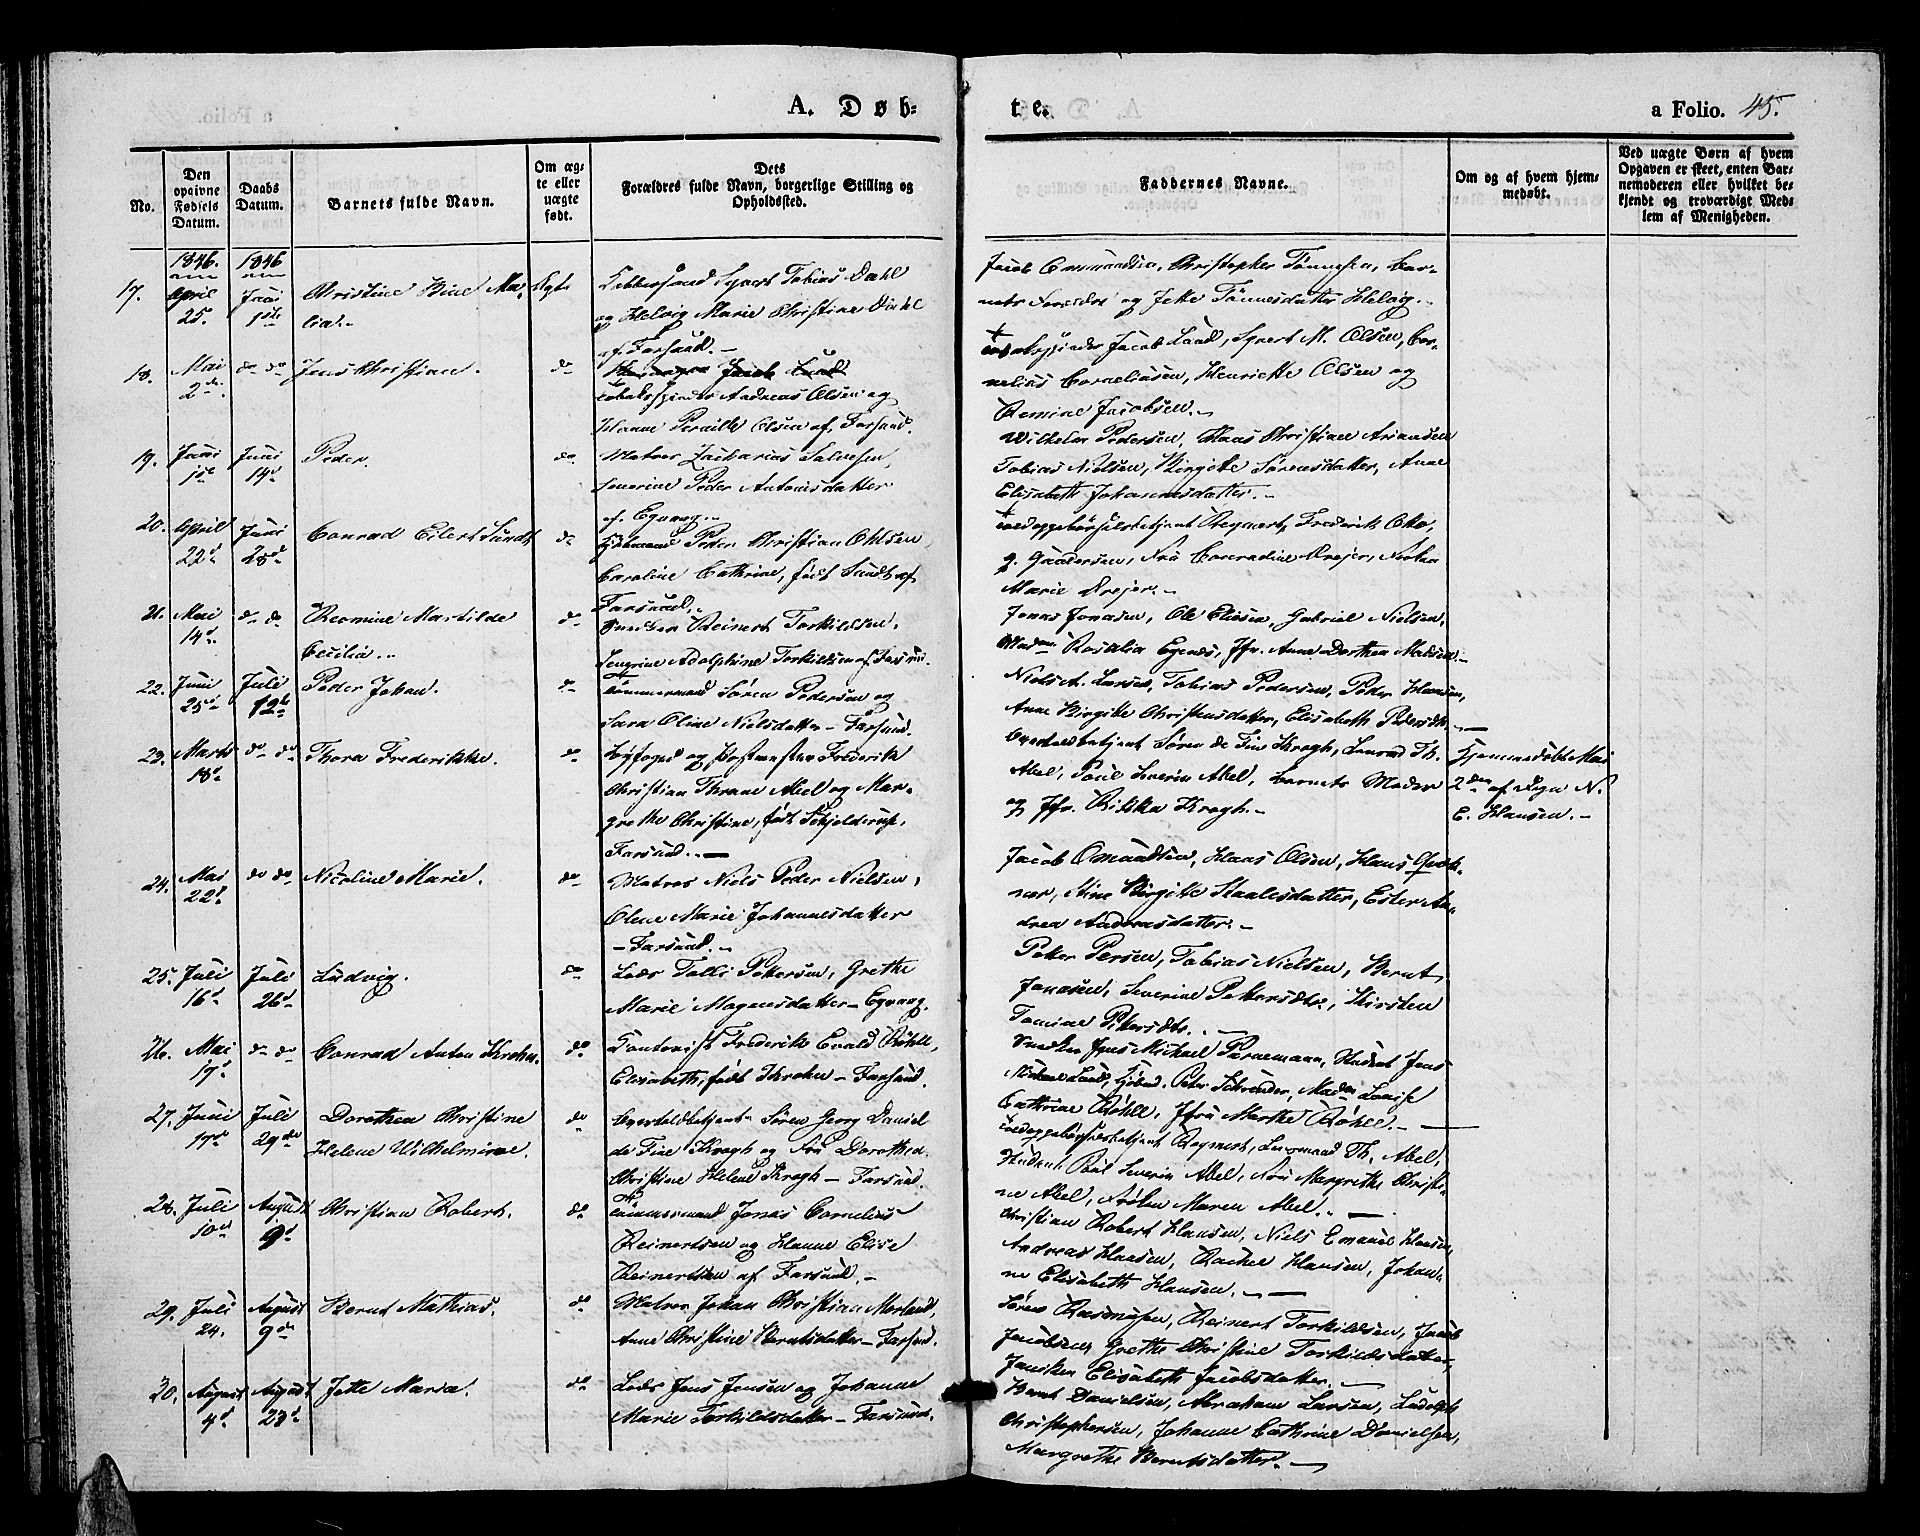 A. Døb-
te.
a Folio. 45.
No.
Den opgivne Fødsels Datum.
Daabs Datum.
Barnets fulde Navn.
Om ægte eller uægte født.
Dets Forældres fulde Navn, borgerlige Stilling og Opholdssted.
Faddernes Navne.
Om og af hvem hjemmedøbt.
Ved uægte Børn af hvem Opgaven er skeet, enten Barnemoderen eller hvilket bekjendt og troværdigt Medlem af Menigheden.
1846. 1846
17. April 25. Juni 1ste Christine Ma- Ægte Tobias Dahl
lia.
og Helvig Marie Christine Dahl
af Farsund.
Jacob Omundsen, Christopher Tønnesen, Bar-
nets og Jette Tønnesdatter Helvig.
18. Mai 2d. do do Jens Christian. do
Tobaksspinder Andreas Olsen og
Hanne Pernille Olsen af Farsund.
Tobaksspinder Jacob Lund, M. Olsen, Cor-
nelius Corneliusen, Henriette Olsen og
Jacobsen.
19. Juni 1ste Juni 14d Peder. do Matros Zacharias Salvesen,
Severine Peder Antonisdatter
af Egvaag.
Wilhelm Pedersen, Hans Christian
Tobias Nielsen, Birgitte Sørensdatter, Anne
Elisabeth Johannesdatter.
20. April 22d Juni 28d Conrad Eilert Sundt do Peder Christian Ohlsen,
Caroline Cathrine, født Sundt af
Farsund.
Toldoppebørselsbetjent Regnert, Frederik Otto,
G. Gundersen, Fru Conradine Dreyer, Frøken
Marie Dreyer.
21. Mai 14d do do Reomine Martilde do Reinert Torkildsen,
Cecilia.
Severine Adolphine Torkildsen af Farsund.
Jonas Jonasen, Ole Eliesen, Gabriel Nielsen,
Madme Rosalia Egenes, Jfr. Anne Dorthea Madsen.
22. Juni 25d Juli 12te Peder Johan. do Tømmermand Søren Pedersen og
Sara Oline Nielsdatter – Farsund.
Niels A. Larsen, Tobias Pedersen, Peder Hansen,
Anne Birgitte Christensdatter, Elisabeth Pedersdtr.
23. Marts 18d do do Thora Frederikke. do Byfoged og Postmester Frederik
Christian Thrane Abel og Mar-
grethe Christine, født Schjelderup,
Farsund.
Overtoldbetjent Søren de Fine Krogh, Lensmand Th.
Abel, Poul Severin Abel, Barnets Moder
og Jfr. Rikka Krogh.
Hjemmedøbt Mai
2den af Pgn N.
E. Hansen.
24. Mai 22d do do Nicoline Marie. do Matros Niels Peder Nielsen,
Olene Marie Johannesdatter
– Farsund.
Jacob Omundsen, Hans Olsen, Hans
Stine Birgitte Staalesdatter, Ester An-
drea Andreasdatter.
25. Juli 16d Juli 26d Ludvig. do Lods Tolli Pettersen, Grethe
Marie Magnesdatter – Egvaag.
Petter Persen, Tobias Nielsen, Bernt
Jonasen, Severine Pettersdtr., Kirsten
Tomine Pettersdtr.
26. Mai 17d do do Conrad Anton Krohn. do Contorist Frederik Evald Röhll,
Elisabeth, født Krohn – Farsund.
Snedker Jens Michael Student Jens
Michael Lund, Peter Schrøder, Madm Louise
Cathrine Röhll, Jfru Marthe Röhll.
27. Juni 17d Juli 29de Dorothea Christine do Overtoldbetjent Søren Georg Daniel
Helene Wilhelmine.
de Fine Krogh og Fru Dorothea
Christine Helene Krogh – Farsund.
Toldoppebørselsbetjent Regnert, Lensmand Th. Abel,
Student Poul Severin Abel, Fru Margrethe Christi-
ne Abel, Frøken Maren Abel.
28. Juli 10d August 9d Christian Robert. do Tømmermand Jonas Cornelius
Reinertsen og Hanne Elise
Reinertsen af Farsund.
Christian Robert Hansen, Niels Emanuel Hansen,
Andreas Hansen, Rachel Hansen, Johan-
ne Elisabeth Hansen.
29. Juli 24. August 9de Bernt Mathias. do Matros Johan Christian Morland,
Anne Christine Berntsdatter – Farsund.
Søren Rasmusen, Reinert Torkildsen, Jacob
Jacobsen, Grethe Christine Torkildsdatter,
Elisabeth Jacobsdatter.
30. August 4d August 23d Jette Maria. do Lods Jens Jensen og Johanne
Marie Torkildsdatter – Farsund.
Bernt Danielsen, Abraham Larsen, Ludolph
Christophersen, Johanne Cathrine Danielsen,
Margrethe Berntsdatter.